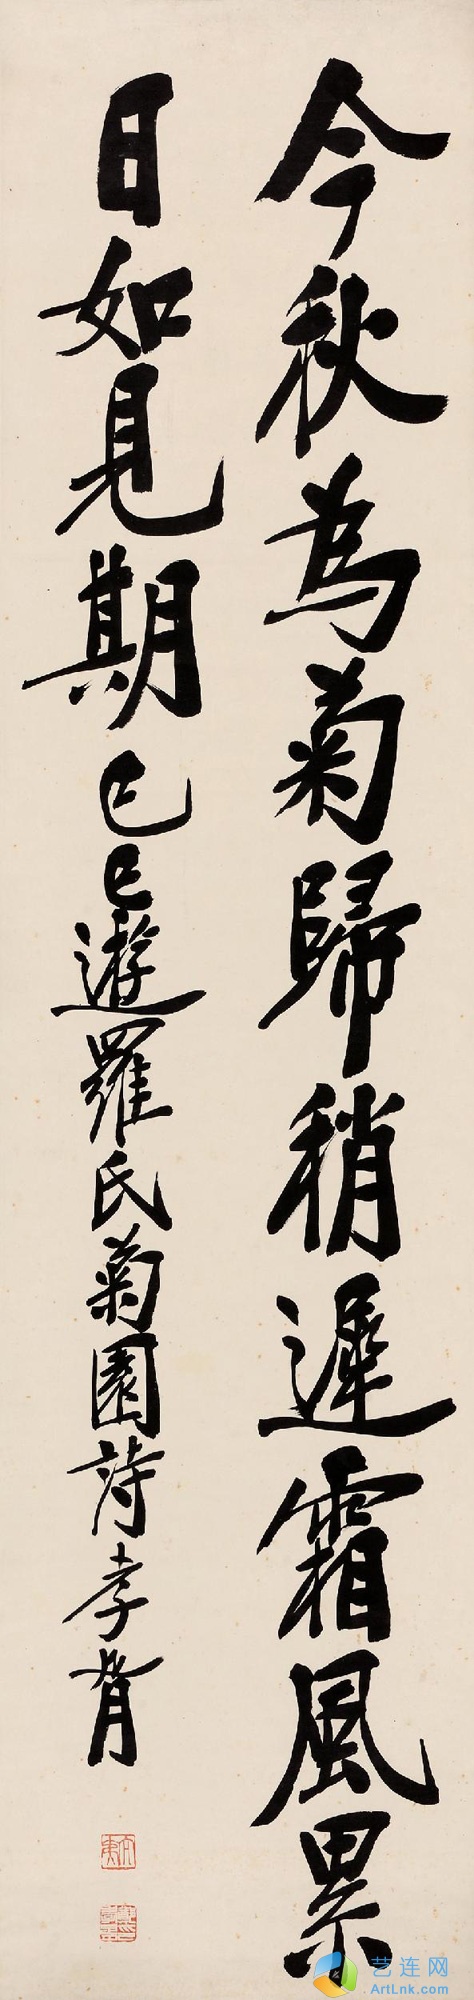 今秋為菊歸稍遲霜風累
日如見期己巳遊羅氏菊園詩孝胥
艺连网
ArtLnk.com